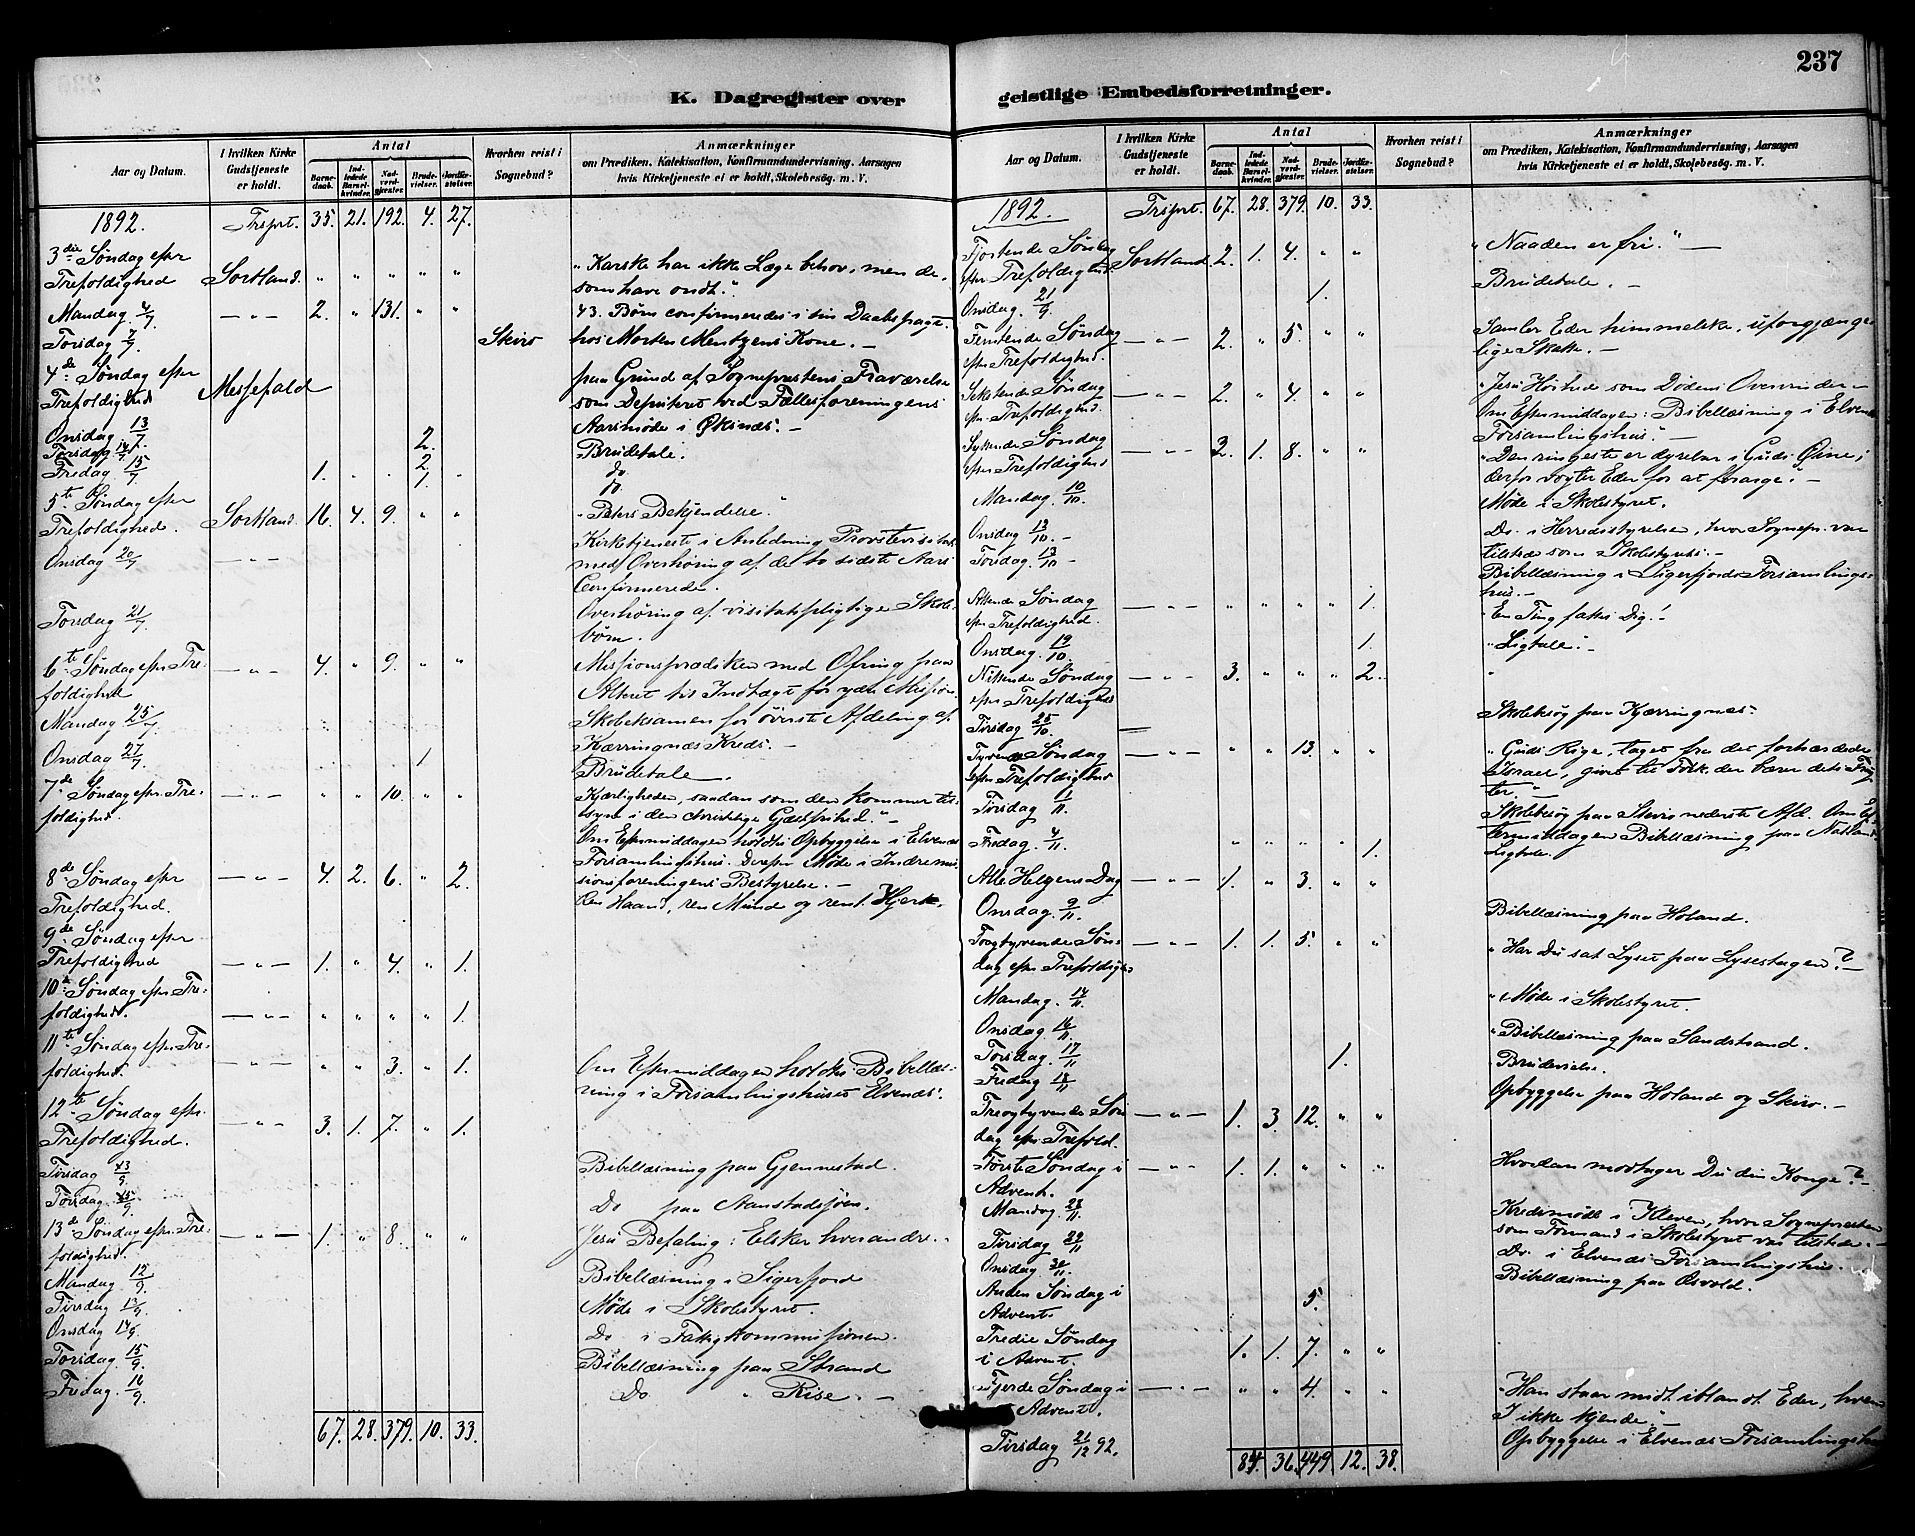 237
K. Dagregister over geistlige Embedsforretninger.
Aar og Datum.
I hvilken Kirke Gudstjeneste er holdt.
Antal
Barnedaab.
Indledede Barselkvinder.
Nadverdgjæster.
Brudevielser.
Jordfæstelser.
Hvorhen reist i Sognebud?
Anmærkninger
om Prædiken, Katekisation, Konfirmandundervisning, Aarsagen
hvis Kirketjeneste ei er holdt, Skolebesøg. m. V.
1892. Trsprt. 35. 21. 192. 4. 27.
3die Søndag efter
Trefoldighed Sortland. " " " " " "Karske har ikke Læge behov, men de,
som have ondt."
Mandag 4/7 — " — 2. " 131. " " 43. Børn confirmeredes i sin Daabspagt.
Torsdag 7/7 Skiro hos Morten Mentzens Kone. —
4de Søndag efter
Trefoldighed Messefald paa Grund af Sognepræstens Fraværelse
som Deputeret ved Fællesforeningens
Aarsmøde i Øksnes. —
Onsdag 13/7. 2. Brudetale.
Torsdag 14/7 2. do
Fredag 15/7 1. 1. "
5te Søndag efter
Trefoldighed. Sortland. 16. 4. 9. " " "Peters Bekjendelse."
Onsdag 20/7 — " — Kirketjeneste i Anledning Provstevisitats
med Overhøring af de to sidste Aars
Confirmerede.
Torsdag 21/7. Overhøring af visitatspligtige Skole-
børn.
6te Søndag efter Tre-
foldighed — " — 4. " 9. " " Missionsprædiken med Ofring paa
Alteret til Indtægt for ydre Mission.
Mandag 25/7 Skoleksamen for øverste Afdeling af
Kærringnæs Kreds. —
Onsdag 27/7. 1 Brudetale.
7de Søndag efter Tre-
foldighed. — " — " " 10. " " Kjærligheden, saadan som den kommer til-
syne i den christelige Gjæstfrihed." —
Om Eftermiddagen holdtes Opbyggelse i Elvenes
Forsamlingshus. Derefter Møde i Indremis-
sionsforeningens Bestyrelse. —
8de Søndag efter
Trefoldighed. — " — 4. 2. 6. " 2. ren Haand, ren Mund og rent Hjerte.
9de Søndag efter
Trefoldighed — " — 1. " 4. " 1.
10de Søndag efter Tre-
foldighed. — " — " " " " 1.
11te Søndag efter Tre-
foldighed. — " — " " 3. " 1. Om Eftermiddagen holdtes Bibellæs-
ning i Forsamlingshuset Elvenes.
12te Søndag efter
Trefoldighed. — " — 3. 1. 7. " 1.
Tirsdag 13/9 Bibellæsning paa Gjennestad.
Torsdag 15/9 Do paa Aanstadsjøen.
13de Søndag efter Tre-
foldighed. — " — 1. " 8. " " Jesu Befaling: Elsker hverandre. "
Mandag 12/9 Bibellæsning i Sigerfjord
Tirsdag 13/9. Møde i Skolestyret.
Onsdag 14/9. Do i Fattigkommissionen.
Torsdag 15/9. Bibellæsning paa Strand
Fredag 16/9. Do " Rise. —
67. 28. 379. 10. 33.
Aar og Datum.
I hvilken Kirke Gudstjeneste er holdt.
Antal
Barnedaab.
Indledede Barselkvinder.
Nadverdgjæster.
Brudevielser.
Jordfæstelser.
Hvorhen reist i Sognebud?
Anmærkninger
om Prædiken, Katekisation, Konfirmandundervisning, Aarsagen
hvis Kirketjeneste ei er holdt, Skolebesøg. m. V.
1892. Trsprt. 67. 28. 379. 10. 33.
Fjortende Søndag
efter Trefoldighed Sortland 2. 1. 4. " " "Naaden er fri." —
Onsdag 21/9. 1. Brudetale. —
Femtende Søndag
efter Trefoldighed. — " — 2. " 5. " " Samler Eder himmelske, uforgjænge-
lige Skatte. —
Sekstende Søndag
efter Trefoldighed. — " — 2. " 4. " " "Jesu Høihed som Dødens Overvinder —
Om Eftermiddagen: Bibellæsning i Elvenes
Forsamlingshus." —
Syttende Søndag
efter Trefoldighed — " — 2. 1. 8. " " "Den ringeste er dyrebar i Guds Øine;
derfor vogter Eder for at forarge. —
Mandag. 10/10. Møde i Skolestyret.
Onsdag 13/10. — Do. i Herredsstyrelsen, hvor Sognepr. var
tilstede som Skolestyrets. —
Torsdag 13/10 — Bibellæsning i Sigerfjords Forsamlings-
hus. —
Attende Søndag
efter Trefoldighed. — " — " " " " 1. "En Ting fattes Dig!
Onsdag. 19/10. 1. "Ligtale". —
Nittende Søndag
efter Trefoldighed — " — 3. " " " 2. "
Tirsdag 25/10. — Skolebesøg paa Kjærringnes.
Tyvende Søndag
efter Trefoldighed — " — " " 13. " " "Guds Rige, taget fra det forhærdede
Israel, givet til Folk, der bærer dets Frug-
ter. "
Tirsdag 1/11. Skolebesøg paa Skiro nederste Afd. Om Ef-
termiddagen Bibellæsning paa
Fredag. 4/11. " " " " 1. Ligtale.
Alle Helgens Dag — " — 1. " 3. " "
Onsdag. 9/11. Bibellæsning paa Holand.
Toogtyvende Søn-
dag efter Trefoldighed — " — 1. 1. 5. " " "Har Du sat Lyset paa Lysestagen? —
Mandag. 14/11. "Møde i Skolestyret.
Onsdag. 16/11. "Bibellæsning paa Sandstrand.
Torsdag. 17/11 1. Brudevielse.
Fredag 18/11 Opbyggelse paa Holand og Skiro. —
Treogtyvende Søn-
dag efter Trefold. — " — 1. 3 12. " "
Første Søndag i
Advent. — " — 1. 1. " " " Hvordan modtager Du din Konge? —
Mandag. 28/11. Kredsmøde i Kleven, hvor Sognepræsten
som Formand i Skolestyret var tilstede. —
Tirsdag 29/11 Do. i Elvenes Forsamlingshus. —
Onsdag 30/11. Bibellæsning paa Osvold.
Anden Søndag i
Advent. 5.
Tredie Søndag
i Advent. 1. 1. 7. " "
Fjerde Søndag i
Advent. — " — " " 4. " " "Han staar midt iblandt Eder, hvem
I ikke kjende." —
Tirsdag 21/12 92. Opbyggelse i Elvenes Forsamlingshus
84. 36. 449. 12. 38.